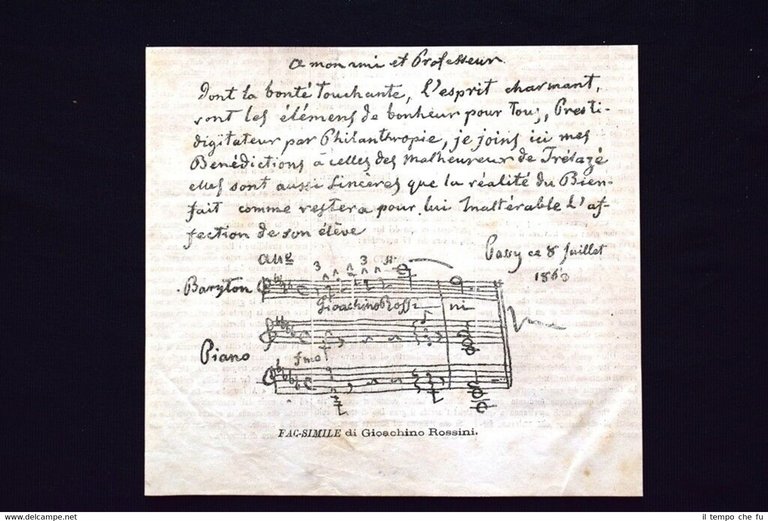 a mon ami et Professeur
Dont la bonté touchante, l'esprit charmant,
sont les élémens de bonheur pour tous, Presti-
digitateur par Philanthropie, je joins ici mes
Benédictions à celles des malheureux de Trélazé
elles sont aussi Sincères que la réalité du Bien-
fait comme restera pour lui Inaltérable l'af-
fection de son élève
Passy ce 8 Juillet
All.º
Baryton
Gioachino Rossi ni
Piano
FAC-SIMILE di Gioachino Rossini.
www.delcampe.net
il tempo che fu